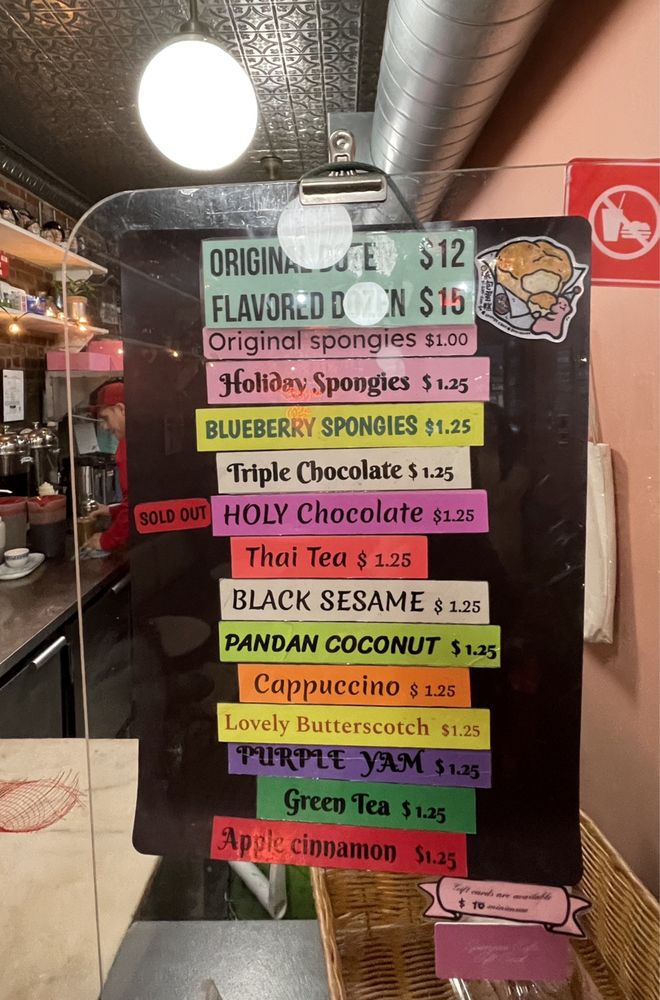 ORIGINAL DOZEN $12
FLAVORED DOZEN $15
Original spongies $1.00
Holiday Spongies $1.25
BLUEBERRY SPONGIES $1.25
Triple Chocolate $1.25
SOLD OUT HOLY Chocolate $1.25
Thai Tea $1.25
BLACK SESAME $1.25
PANDAN COCONUT $1.25
Cappuccino $1.25
Lovely Butterscotch $1.25
PURPLE YAM $1.25
Green Tea $1.25
Apple cinnamon $1.25
Gift cards are available
$10 minimum